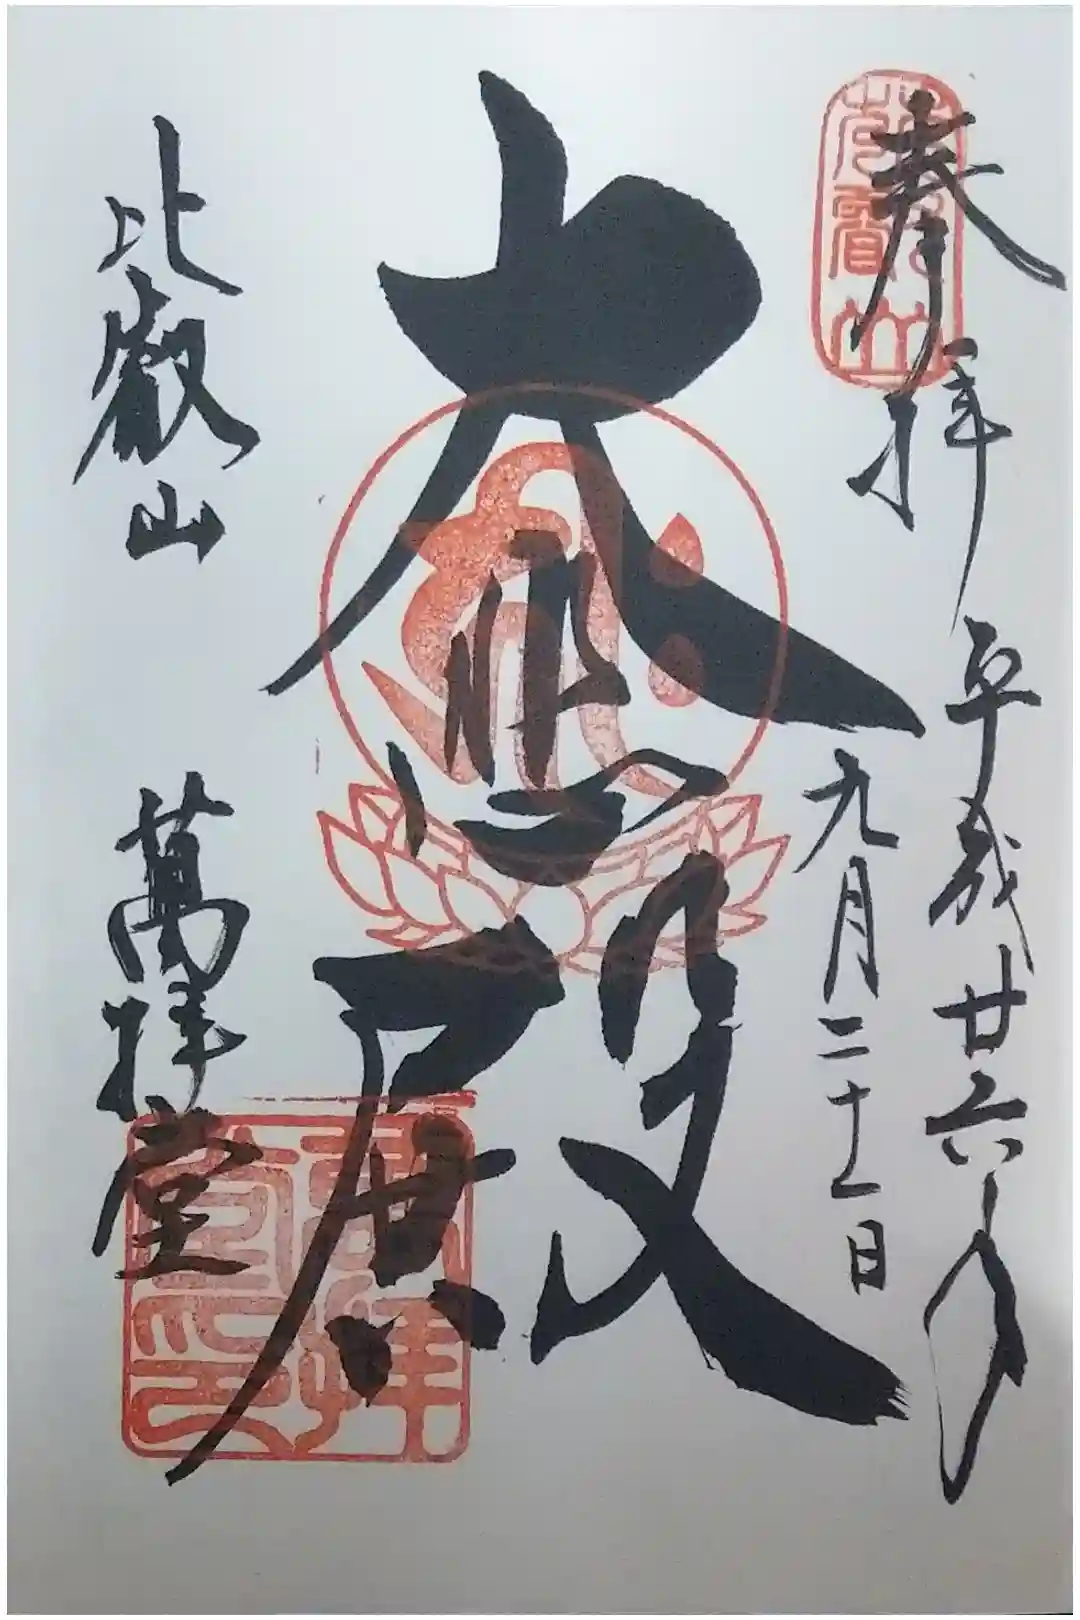 奉拝
平成廿六年
九月二十一日
大悲殿
比叡山
萬拝堂